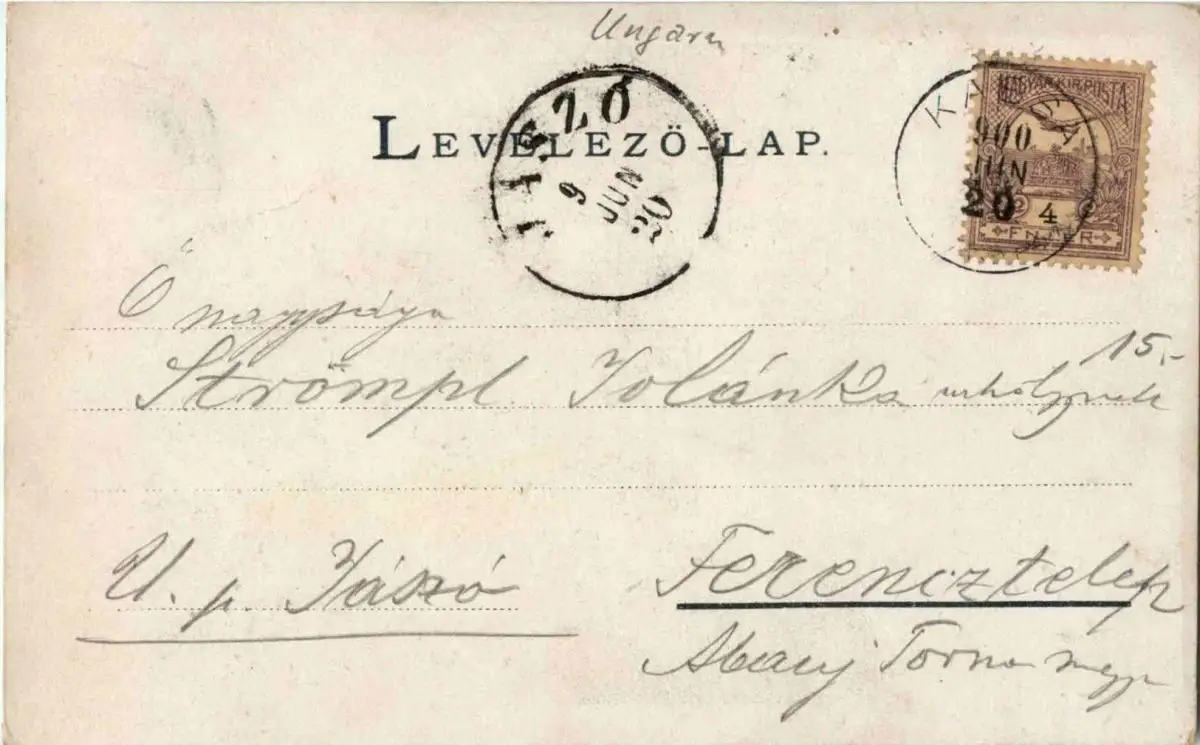 Ungarn
LEVELEZŐ-LAP.
JÁSZÓ
9 JUN 20
MAGYAR KIR. POSTA
900
JUN
20
4
Ő nagysága
Strömpl Jolánka urhölgynek
15.-
U. p. Jászó
Ferencztelep
Abauj Torna megye